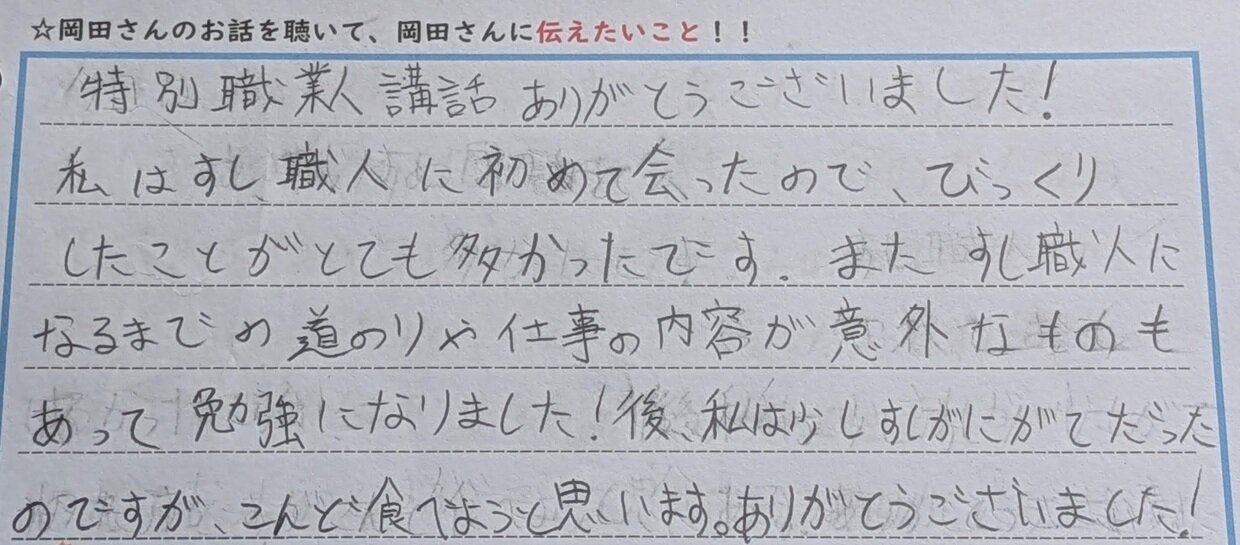 ☆岡田さんのお話を聴いて、岡田さんに伝えたいこと！！
特別職業人講話ありがとうございました！
私はすし職人に初めて会ったので、びっくり
したことがとても多かったです。またすし職人に
なるまでの道のりや仕事の内容が意外なものも
あって勉強になりました！後、私は少しすしがにがてだった
のですが、こんど食べようと思います。ありがとうございました！